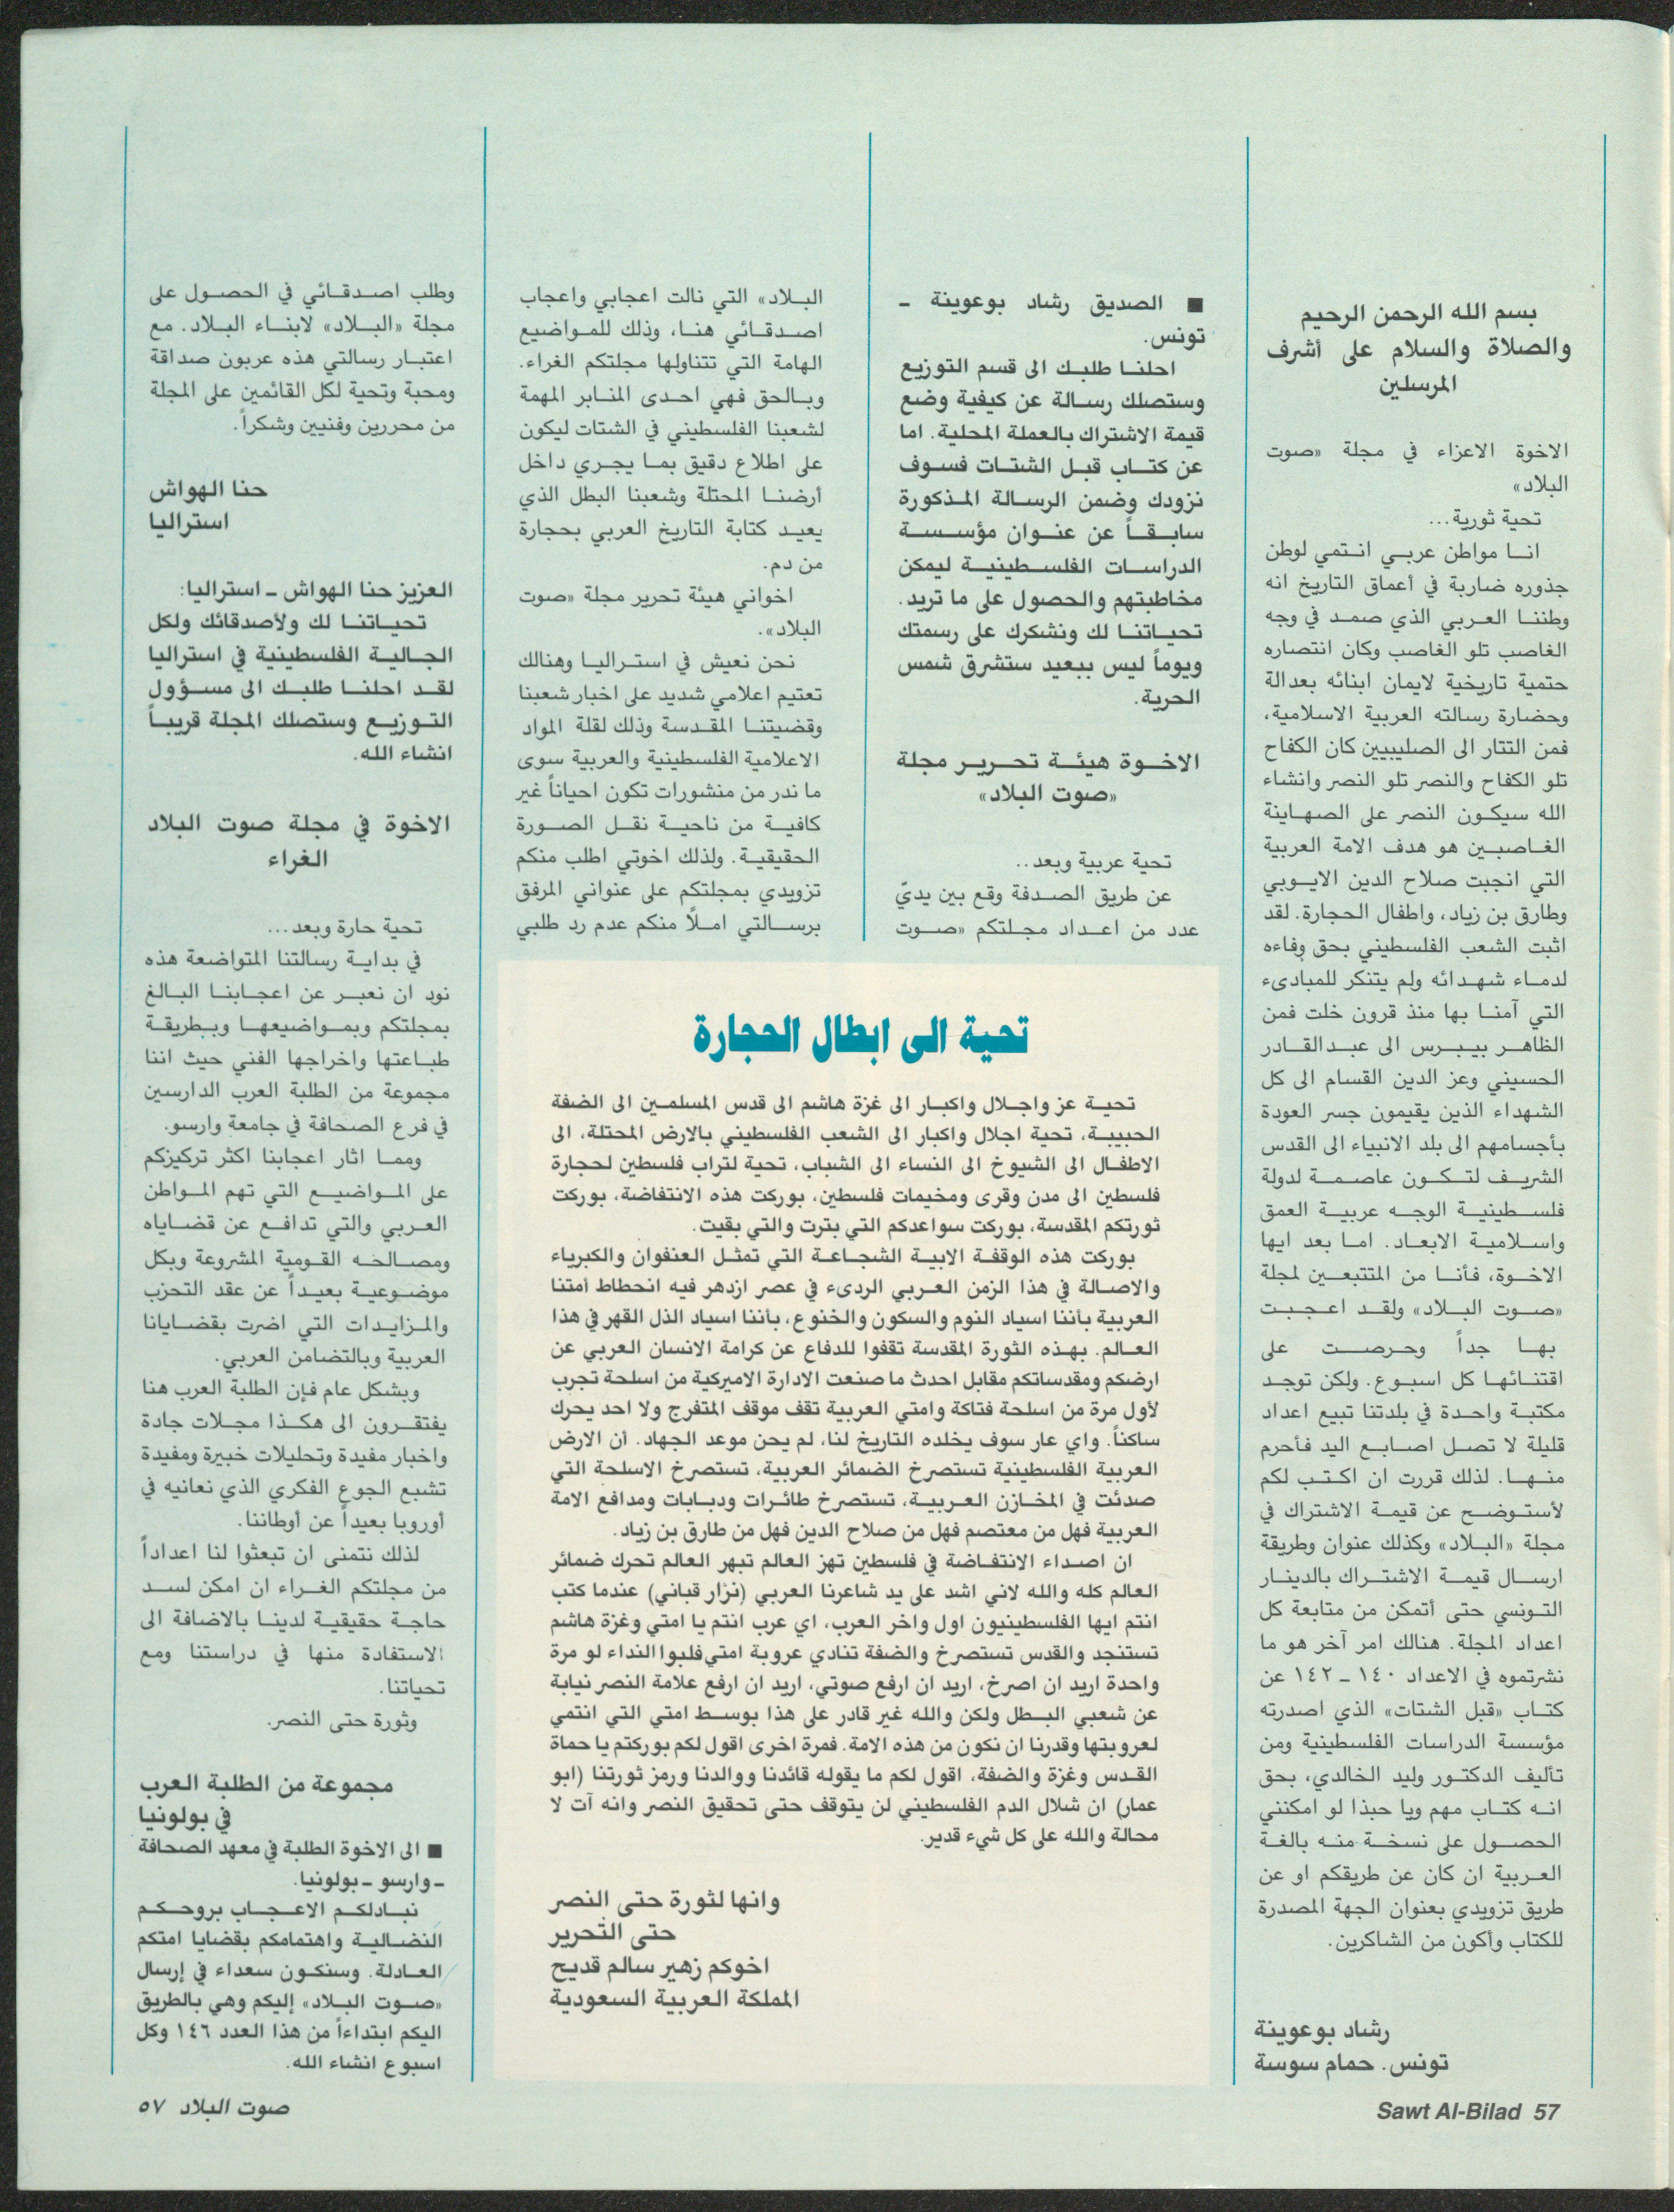 بسم الله الرحمن الرحيم
والصلاة والسلام على أشرف
المرسلين
الاخوة الاعزاء في مجلة «صوت
البلاد»
تحية ثورية...
انا مواطن عربي انتمي لوطن
جذوره ضاربة في أعماق التاريخ انه
وطننا العربي الذي صمد في وجه
الغاصب تلو الغاصب وكان انتصاره
حتمية تاريخية لايمان ابنائه بعدالة
وحضارة رسالته العربية الاسلامية،
فمن التتار الى الصليبيين كان الكفاح
تلو الكفاح والنصر تلو النصر وانشاء
الله سيكون النصر على الصهاينة
الغاصبين هو هدف الامة العربية
التي انجبت صلاح الدين الايوبي
وطارق بن زياد، واطفال الحجارة. لقد
اثبت الشعب الفلسطيني بحق وفاءه
لدماء شهدائه ولم يتنكر للمبادىء
التي آمنا بها منذ قرون خلت فمن
الظاهر بيبرس الى عبدالقادر
الحسيني وعز الدين القسام الى كل
الشهداء الذين يقيمون جسر العودة
بأجسامهم الى بلد الانبياء الى القدس
الشريف لتكون عاصمة لدولة
فلسطينية الوجه عربية العمق
واسلامية الابعاد. اما بعد ايها
الاخوة، فأنا من المتتبعين لمجلة
«صوت البلاد» ولقد اعجبت
بها جداً وحرصت على
اقتنائها كل اسبوع. ولكن توجد
مكتبة واحدة في بلدتنا تبيع اعداد
قليلة لا تصل اصابع اليد فأحرم
منها. لذلك قررت ان اكتب لكم
لأستوضح عن قيمة الاشتراك في
مجلة «البلاد» وكذلك عنوان وطريقة
ارسال قيمة الاشتراك بالدينار
التونسي حتى أتمكن من متابعة كل
اعداد المجلة. هنالك امر آخر هو ما
نشرتموه في الاعداد ١٤٠ ـ ١٤٢ عن
كتاب «قبل الشتات» الذي اصدرته
مؤسسة الدراسات الفلسطينية ومن
تأليف الدكتور وليد الخالدي، بحق
انه كتاب مهم ويا حبذا لو امكنني
الحصول على نسخة منه بالغة
العربية ان كان عن طريقكم او عن
طريق تزويدي بعنوان الجهة المصدرة
للكتاب وأكون من الشاكرين.
رشاد بوعوينة
تونس. حمام سوسة
■ الصديق رشاد بوعوينة ـ
تونس.
احلنا طلبك الى قسم التوزيع
وستصلك رسالة عن كيفية وضع
قيمة الاشتراك بالعملة المحلية. اما
عن كتاب قبل الشتات فسوف
نزودك وضمن الرسالة المذكورة
سابقاً عن عنوان مؤسسة
الدراسات الفلسطينية ليمكن
مخاطبتهم والحصول على ما تريد.
تحياتنا لك ونشكرك على رسمتك
ويوماً ليس ببعيد ستشرق شمس
الحرية.
الاخوة هيئة تحرير مجلة
«صوت البلاد»
تحية عربية وبعد..
عن طريق الصدفة وقع بين يديّ
عدد من اعداد مجلتكم «صوت
البلاد» التي نالت اعجابي واعجاب
اصدقائي هنا، وذلك للمواضيع
الهامة التي تتناولها مجلتكم الغراء.
وبالحق فهي احدى المنابر المهمة
لشعبنا الفلسطيني في الشتات ليكون
على اطلاع دقيق بما يجري داخل
أرضنا المحتلة وشعبنا البطل الذي
يعيد كتابة التاريخ العربي بحجارة
من دم.
اخواني هيئة تحرير مجلة «صوت
البلاد».
نحن نعيش في استراليا وهنالك
تعتيم اعلامي شديد على اخبار شعبنا
وقضيتنا المقدسة وذلك لقلة المواد
الاعلامية الفلسطينية والعربية سوى
ما ندر من منشورات تكون احياناً غير
كافية من ناحية نقل الصورة
الحقيقية. ولذلك اخوتي اطلب منكم
تزويدي بمجلتكم على عنواني المرفق
برسالتي املاً منكم عدم رد طلبي
وطلب اصدقائي في الحصول على
مجلة «البلاد» لابناء البلاد. مع
اعتبار رسالتي هذه عربون صداقة
ومحبة وتحية لكل القائمين على المجلة
من محررين وفنيين وشكراً.
حنا الهواش
استراليا
العزيز حنا الهواش ـ استراليا:
تحياتنا لك ولأصدقائك ولكل
الجالية الفلسطينية في استراليا
لقد احلنا طلبك الى مسؤول
التوزيع وستصلك المجلة قريباً
انشاء الله.
الاخوة في مجلة صوت البلاد
الغراء
تحية حارة وبعد...
في بداية رسالتنا المتواضعة هذه
نود ان نعبر عن اعجابنا البالغ
بمجلتكم وبمواضيعها وبطريقة
طباعتها واخراجها الفني حيث اننا
مجموعة من الطلبة العرب الدارسين
في فرع الصحافة في جامعة وارسو.
ومما اثار اعجابنا اكثر تركيزكم
على المواضيع التي تهم المواطن
العربي والتي تدافع عن قضاياه
ومصالحه القومية المشروعة وبكل
موضوعية بعيداً عن عقد التحزب
والمزايدات التي اضرت بقضايانا
العربية وبالتضامن العربي.
وبشكل عام فإن الطلبة العرب هنا
يفتقرون الى هكذا مجلات جادة
واخبار مفيدة وتحليلات خبيرة ومفيدة
تشبع الجوع الفكري الذي نعانيه في
أوروبا بعيداً عن أوطاننا.
لذلك نتمنى ان تبعثوا لنا اعداداً
من مجلتكم الغراء ان امكن لسد
حاجة حقيقية لدينا بالاضافة الى
الاستفادة منها في دراستنا ومع
تحياتنا.
وثورة حتى النصر.
مجموعة من الطلبة العرب
في بولونيا
■ الى الاخوة الطلبة في معهد الصحافة
ـ وارسو ـ بولونيا.
نبادلكم الاعجاب بروحكم
النضالية واهتمامكم بقضايا امتكم
العادلة. وسنكون سعداء في إرسال
«صوت البلاد» إليكم وهي بالطريق
اليكم ابتداءاً من هذا العدد ١٤٦ وكل
اسبوع انشاء الله.
تحية الى ابطال الحجارة
تحية عز واجلال واكبار الى غزة هاشم الى قدس المسلمين الى الضفة
الحبيبة، تحية اجلال واكبار الى الشعب الفلسطيني بالارض المحتلة، الى
الاطفال الى الشيوخ الى النساء الى الشباب، تحية لتراب فلسطين لحجارة
فلسطين الى مدن وقرى ومخيمات فلسطين، بوركت هذه الانتفاضة، بوركت
ثورتكم المقدسة، بوركت سواعدكم التي بترت والتي بقيت.
بوركت هذه الوقفة الابية الشجاعة التي تمثل العنفوان والكبرياء
والاصالة في هذا الزمن العربي الردىء في عصر ازدهر فيه انحطاط أمتنا
العربية بأننا اسياد النوم والسكون والخنوع، بأننا اسياد الذل القهر في هذا
العالم. بهذه الثورة المقدسة تقفوا للدفاع عن كرامة الانسان العربي عن
ارضكم ومقدساتكم مقابل احدث ما صنعت الادارة الاميركية من اسلحة تجرب
لأول مرة من اسلحة فتاكة وامتي العربية تقف موقف المتفرج ولا احد يحرك
ساكناً. واي عار سوف يخلده التاريخ لنا، لم يحن موعد الجهاد. أن الارض
العربية الفلسطينية تستصرخ الضمائر العربية، تستصرخ الاسلحة التي
صدئت في المخازن العربية، تستصرخ طائرات ودبابات ومدافع الامة
العربية فهل من معتصم فهل من صلاح الدين فهل من طارق بن زياد.
ان اصداء الانتفاضة في فلسطين تهز العالم تبهر العالم تحرك ضمائر
العالم كله والله لاني اشد على يد شاعرنا العربي (نزار قباني) عندما كتب
انتم ايها الفلسطينيون اول واخر العرب، اي عرب انتم يا امتي وغزة هاشم
تستنجد والقدس تستصرخ والضفة تنادي عروبة امتي فلبوا النداء لو مرة
واحدة اريد ان اصرخ، اريد ان ارفع صوتي، اريد ان ارفع علامة النصر نيابة
عن شعبي البطل ولكن والله غير قادر على هذا بوسط امتي التي انتمي
لعروبتها وقدرنا ان نكون من هذه الامة. فمرة اخرى اقول لكم بوركتم يا حماة
القدس وغزة والضفة، اقول لكم ما يقوله قائدنا ووالدنا ورمز ثورتنا (ابو
عمار) ان شلال الدم الفلسطيني لن يتوقف حتى تحقيق النصر وانه آت لا
محالة والله على كل شيء قدير.
وانها لثورة حتى النصر
حتى التحرير
اخوكم زهير سالم قديح
المملكة العربية السعودية
صوت البلاد ٥٧
Sawt Al-Bilad 57